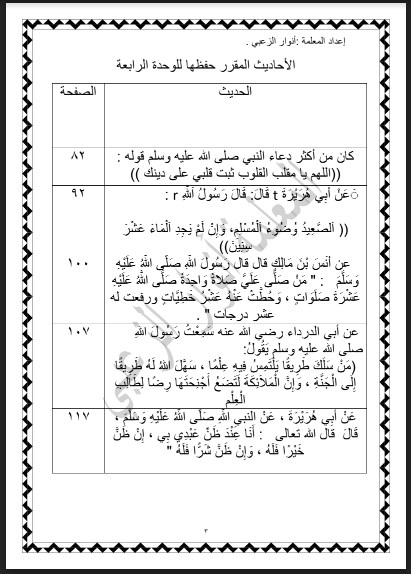 إعداد المعلمة :أنوار الزعبي .
الأحاديث المقرر حفظها للوحدة الرابعة
الحديث
الصفحة
كان من أكثر دعاء النبي صلى الله عليه وسلم قوله :
((اللهم يا مقلب القلوب ثبت قلبي على دينك ))
٨٢
َعَنْ أَبِي هُرَيْرَةَ t قَالَ: قَالَ رَسُولُ اَللَّهِ r :
(( اَلصَّعِيدُ وُضُوءُ اَلْمُسْلِمِ، وَإِنْ لَمْ يَجِدِ اَلْمَاءَ عَشْرَ
سِنِينَ))
٩٢
عن أنَسَ بْنَ مَالِكٍ قال قال رَسُولُ اللَّهِ صَلَّى اللَّهُ عَلَيْهِ
وَسَلَّمَ : " مَنْ صَلَّى عَلَيَّ صَلَاةً وَاحِدَةً صَلَّى اللَّهُ عَلَيْهِ
عَشْرَةَ صَلَوَاتٍ ، وَحُطَّتْ عَنْهُ عَشْرُ خَطِيَّاتٍ ورفعت له
عشر درجات " .
١٠٠
عن أبي الدرداء رضي الله عنه سَمِعْتُ رَسُولَ اللهِ
صلى الله عليه وسلم يَقُولُ:
(مَنْ سَلَكَ طَرِيقًا يَلْتَمِسُ فِيهِ عِلْمًا ، سَهَّلَ اللهُ لَهُ طَرِيقًا
إِلَى الْجَنَّةِ ، وَإِنَّ الْمَلَائِكَةَ لَتَضَعُ أَجْنِحَتَهَا رِضًا لِطَالِبِ
الْعِلْمِ
١٠٧
عَنْ أَبِي هُرَيْرَةَ ، عَنْ النبي اللَّهِ صَلَّى اللَّهُ عَلَيْهِ وَسَلَّمَ ،
قَالَ قال الله تعالى : أَنَا عِنْدَ ظَنِّ عَبْدِي بِي ، إِنْ ظَنَّ
خَيْرًا فَلَهُ ، وَإِنْ ظَنَّ شَرًّا فَلَهُ "
١١٧
المعلمة أنوار الزعبي
٣